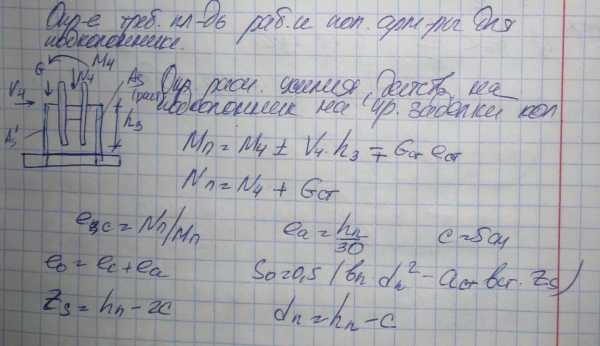 Опр-е треб. пл-дь раб.и поп. арм-ры для
подколонника.
M4
G N4 As
V4 (раст
h3
A's
Опр. расч. усилия, действ. на
подколонник на ур. заделки кол
Mп = M4 ± V4·h3 ∓ Gст eст
Nп = N4 + Gст
eзс = Nп/Mп ea = hп/30 c = 5см
e0 = ec + ea S0 = 0,5 (вп dп² - aст вст. Zs)
Zs = hп - 2c dп = hп - c